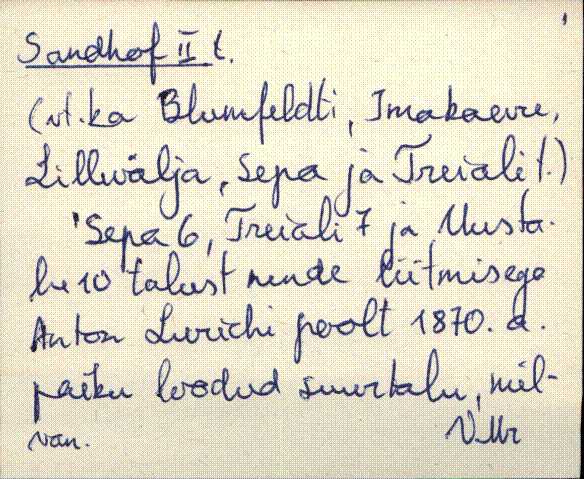 Sandhof II t.
(vt. ka Blumfeldti, Imakaevu,
Lillwälja, Sepa ja Treiali t.)
'Sepa 6, Treiali 7 ja Uusta-
lu 10 talust nende liitmisega
Anton Lurichi poolt 1870. a.
paiku loodud suurtalu, mil-
VMr